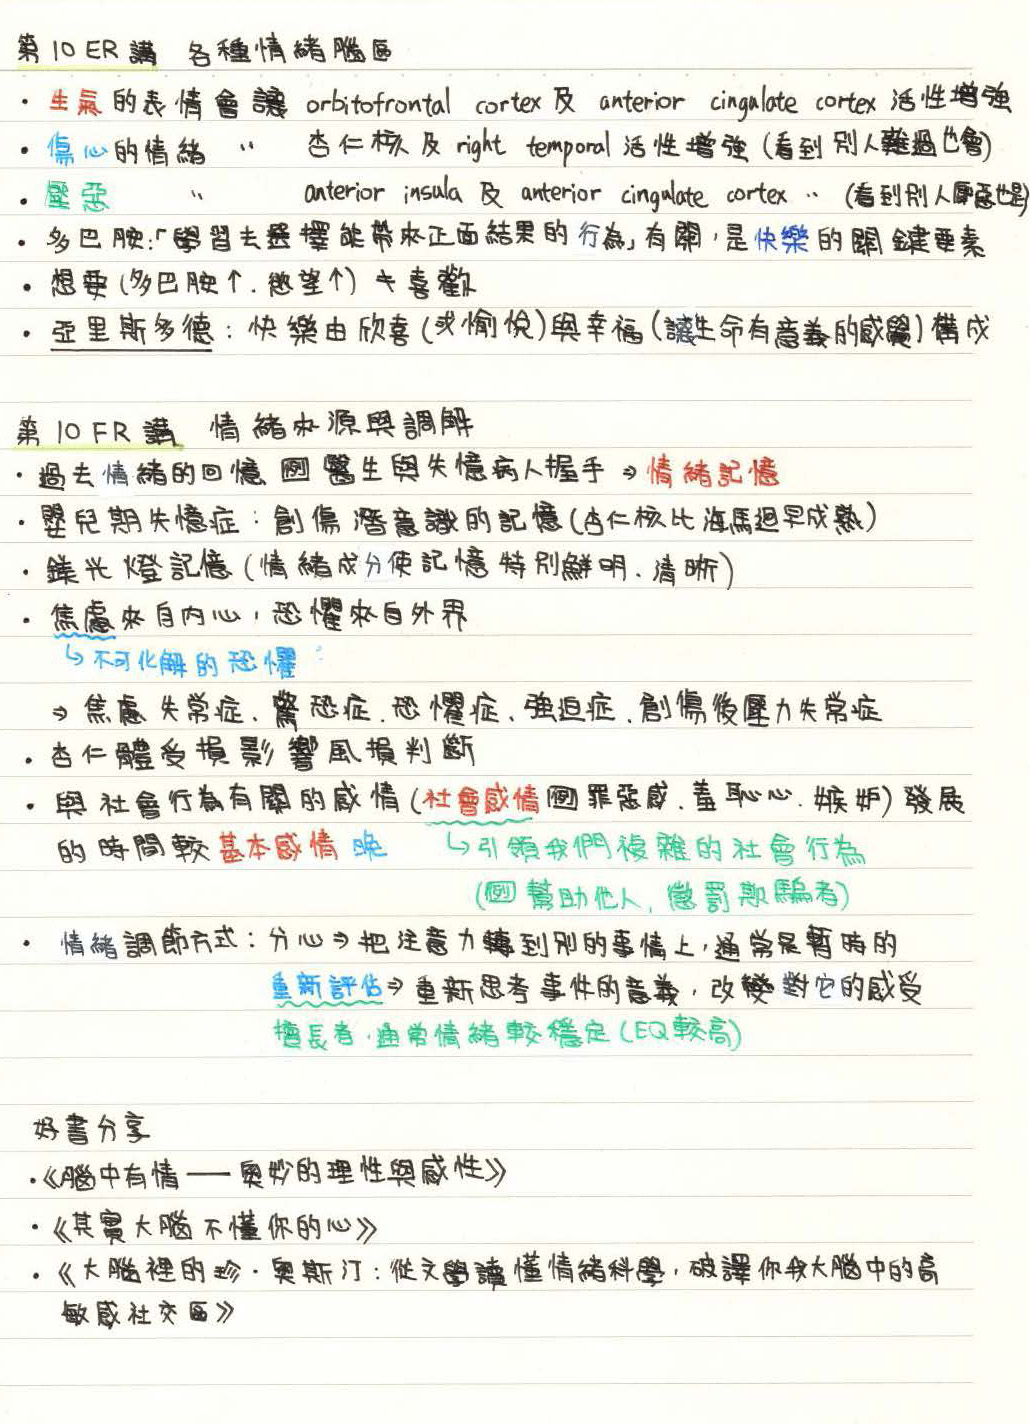 第10ER講 各種情緒腦區
・生氣的表情會讓 orbitofrontal cortex 及 anterior cingulate cortex 活性增強
・傷心的情緒 〃 杏仁核及 right temporal 活性增強(看到別人難過也會)
・壓惡 〃 anterior insula 及 anterior cingulate cortex 〃 (看到別人厭惡也是)
・多巴胺:「學習去選擇能帶來正面結果的行為」有關,是快樂的關鍵要素
・想要(多巴胺↑.慾望↑)≠喜歡
・亞里斯多德:快樂由欣喜(或愉悅)與幸福(讓生命有意義的感覺)構成
第10FR講 情緒來源與調解
・過去情緒的回憶 例 醫生與失憶病人握手 ⇒ 情緒記憶
・嬰兒期失憶症:創傷潛意識的記憶(杏仁核比海馬迴早成熟)
・鎂光燈記憶(情緒成分使記憶特別鮮明、清晰)
・焦慮來自內心,恐懼來自外界
↳不可化解的恐懼
⇒ 焦慮失常症、驚恐症、恐懼症、強迫症、創傷後壓力失常症
・杏仁體受損影響風損判斷
・與社會行為有關的感情(社會感情 例 罪惡感、羞恥心、嫉妒)發展
的時間較基本感情 晚 ↳引領我們複雜的社會行為
(例 幫助他人、懲罰欺騙者)
・情緒調節方式:分心⇒把注意力轉到別的事情上,通常是暫時的
重新評估⇒重新思考事件的意義,改變對它的感受
擅長者,通常情緒較穩定(EQ較高)
好書分享
・《腦中有情——奧妙的理性與感性》
・《其實大腦不懂你的心》
・《大腦裡的珍・奧斯汀:從文學讀懂情緒科學,破譯你我大腦中的高
敏感社交區》